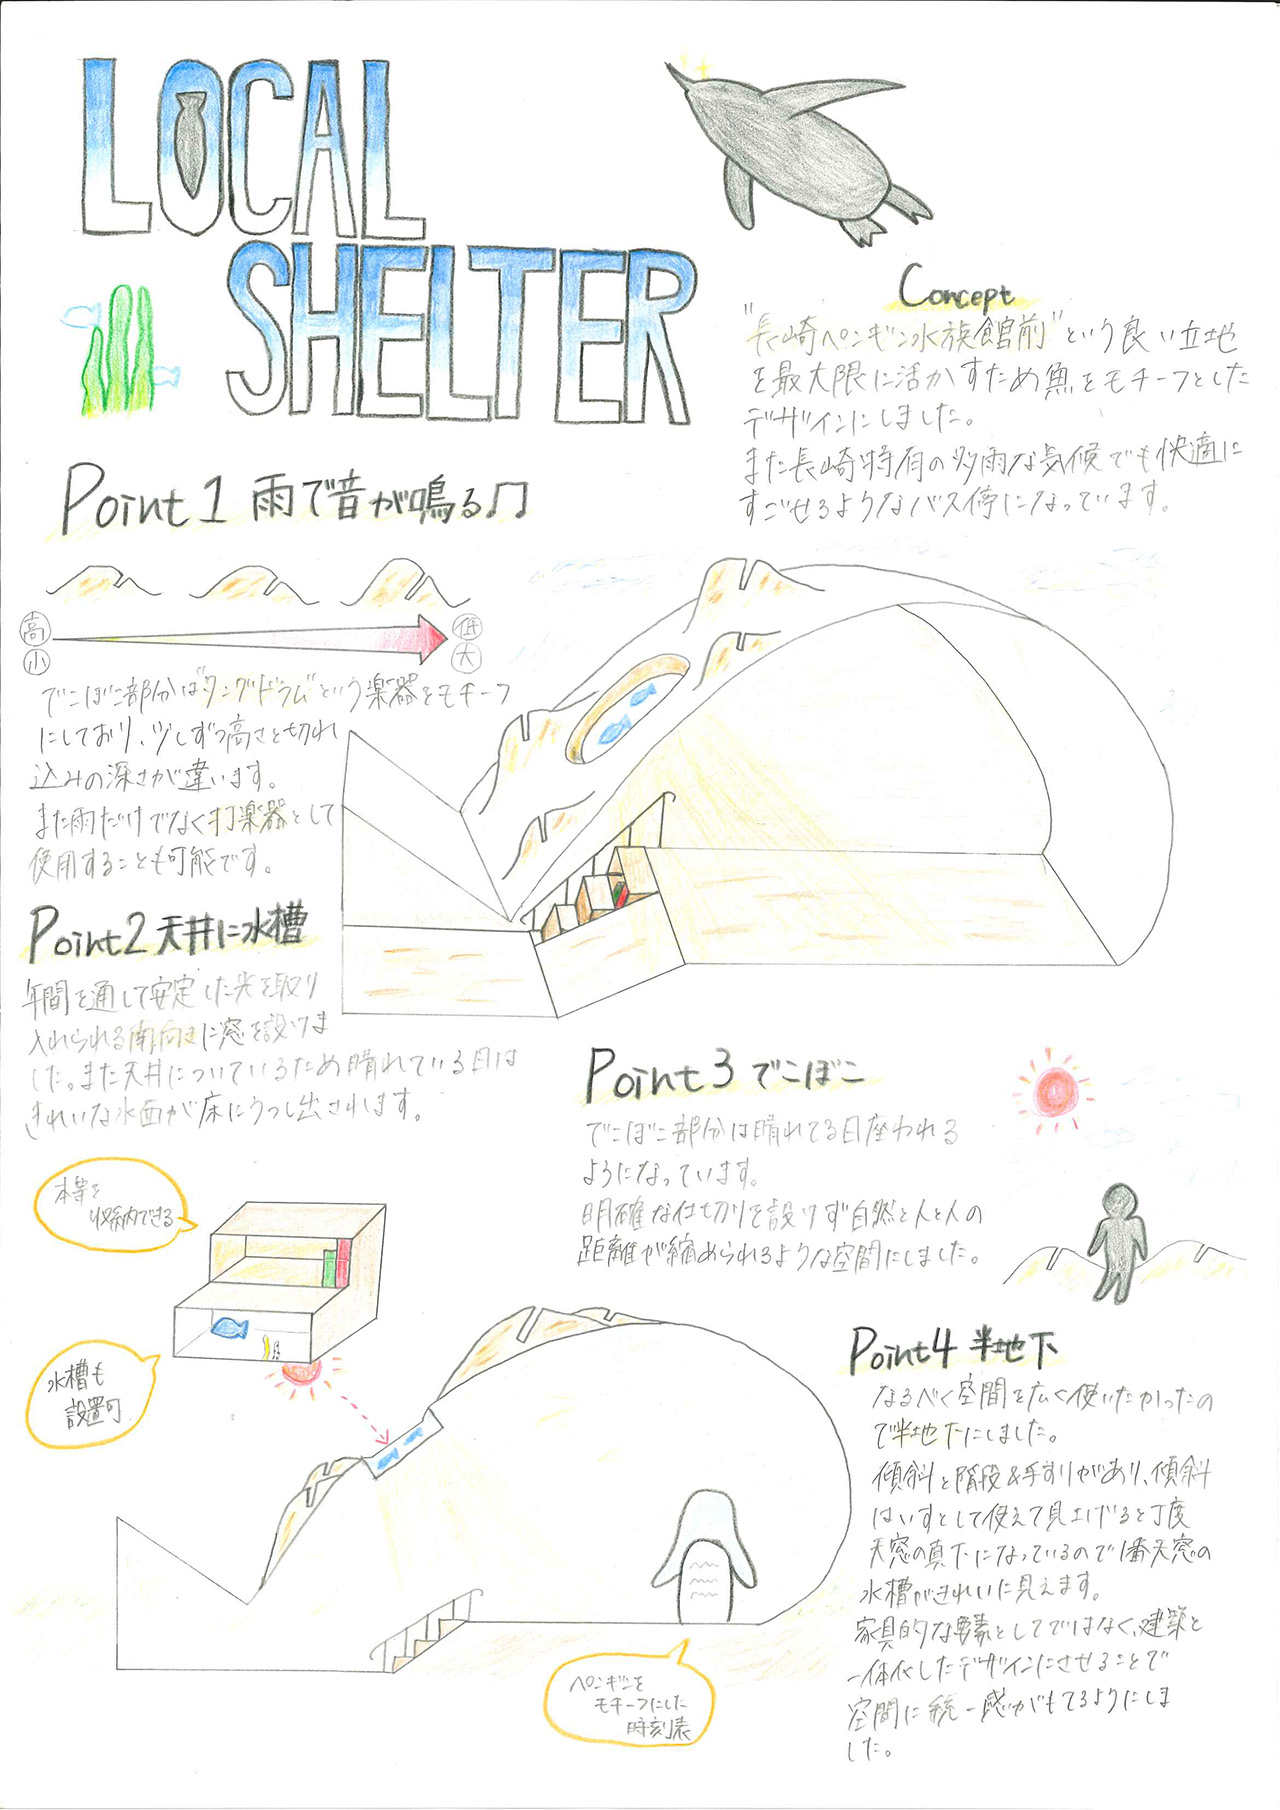 LOCAL
SHELTER
Concept
"長崎ペンギン水族館前"という良い立地
を最大限に活かすため魚をモチーフとした
デザインにしました。
また長崎特有の多雨な気候でも快適に
すごせるようなバス停になっています。
Point1 雨で音が鳴る♫
高
小
低
大
でこぼこ部分は"タングドラム"という楽器をモチーフ
にしており、少しずつ高さと切れ
込みの深さが違います。
また雨だけでなく打楽器として
使用することも可能です。
Point2 天井に水槽
年間を通して安定した光を取り
入れられる南向きに窓を設けま
した。また天井についているため晴れている日は
きれいな水面が床にうつし出されます。
本等を
収納できる
水槽も
設置可
Point3 でこぼこ
でこぼこ部分は晴れてる日座われる
ようになっています。
明確な仕切りを設けず自然と人と人の
距離が縮められるような空間にしました。
Point4 半地下
なるべく空間を広く使いたかったの
で半地下にしました。
傾斜と階段&手すりがあり、傾斜
はいすとして使えて見上げると丁度
天窓の真下になっているので1番天窓の
水槽がきれいに見えます。
家具的な要素としてではなく、建築と
一体化したデザインにさせることで
空間に統一感がもてるようにしま
した。
ペンギンを
モチーフにした
時刻表